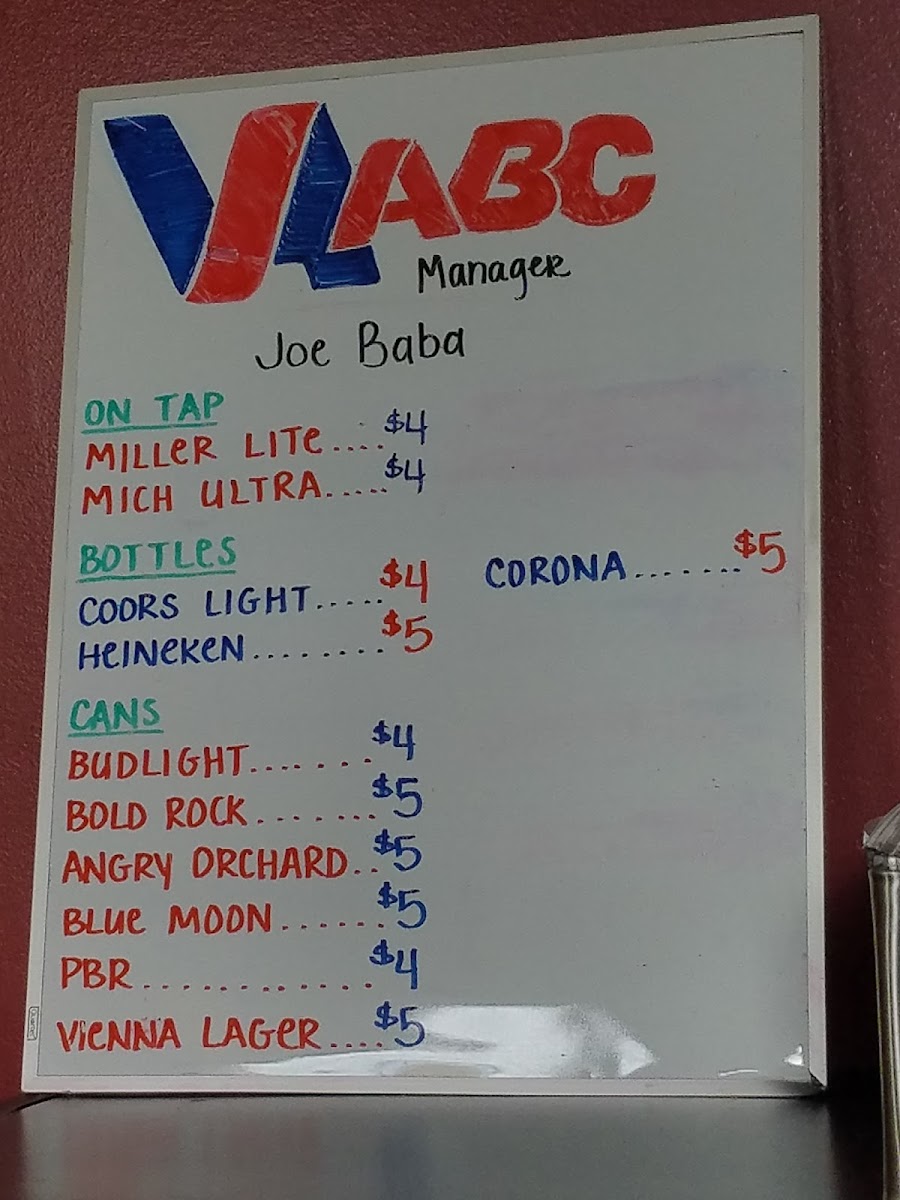 VA ABC
Manager
Joe Baba
ON TAP
MILLER LITE....$4
MICH ULTRA.....$4
BOTTLES
COORS LIGHT.....$4
HEINEKEN........$5
CORONA.......$5
CANS
BUDLIGHT.......$4
BOLD ROCK.......$5
ANGRY ORCHARD..$5
BLUE MOON......$5
PBR............$4
VIENNA LAGER....$5